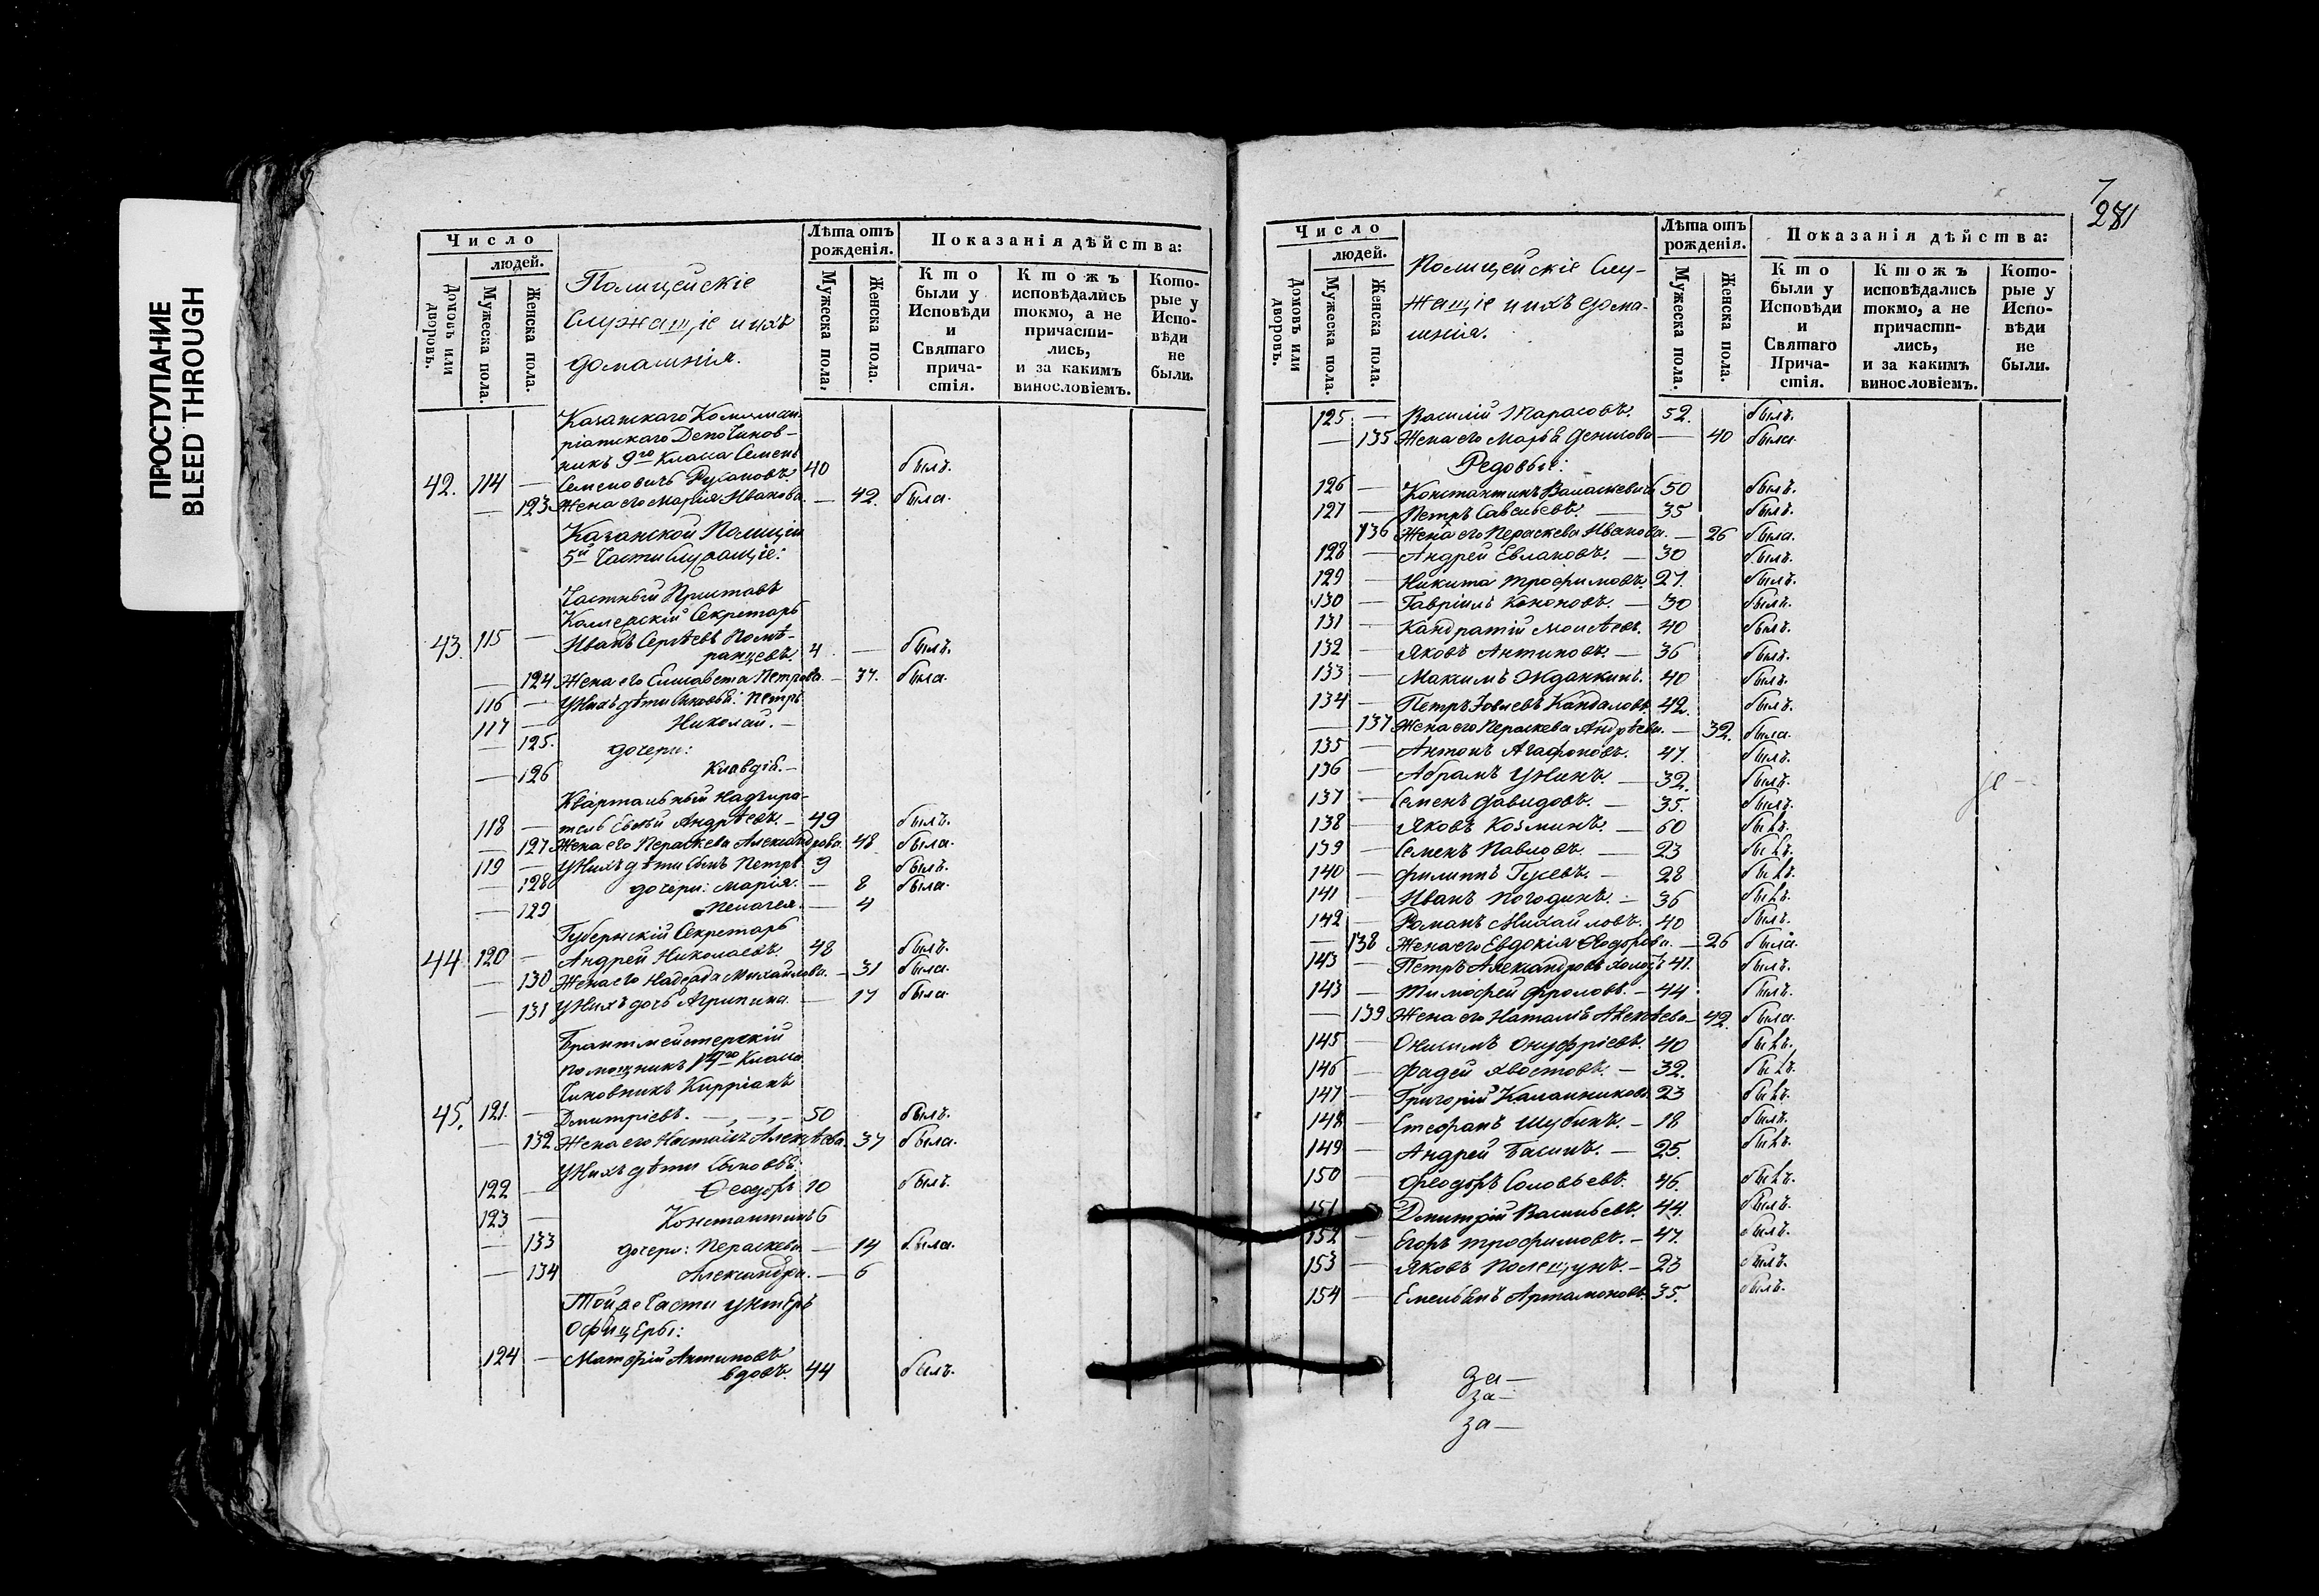 ПРОСТУПАНИЕ
BLEED THROUGH
Число
людей.
Домовъ или дворовъ.
Мужеска пола.
Женска пола.
Полицейскіе
Служащіе и ихъ
домашнія.
Лѣта отъ рожденія.
Мужеска пола.
Женска пола.
Показанія дѣйства:
Кто были у Исповѣди и Святаго причастія.
Ктожъ исповѣдались токмо, а не причастились, и за какимъ винословіемъ.
Которые у Исповѣди не были.
Казанскаго Коммисаріатскаго Депо Чиновникъ 9го Класса Семенъ
42. 114 — Семеновичь Русановъ. 40 былъ.
— 123 Жена его Марія Иванова. — 42. была.
Казанской Полиціи
5й Части Служащіе:
Частный Приставъ
Коллежскій Секретарь
43. 115 — Иванъ Сергѣевъ Помѣ-
ранцевъ. 4 — былъ.
— 124 Жена его Елисавета Петрова. — 37. была.
116 — У нихъ дѣти сыновья: Петръ
117 — Николай. —
— 125. дочери:
— 126 Клавдія. —
Квартальный Надзира-
118 — тель Андрѣевъ. — 49 былъ.
— 127 Жена его Параскева Александрова. 48 была.
119 — У нихъ дѣти сынъ Петръ. 9 былъ.
— 128 дочери: Марія. — 8 была.
— 129 Пелагея. — 4
Губернскій Секретарь
44 120 — Андрей Николаевъ. 48 былъ.
— 130 Жена его Надежда Михайлова. — 31 была.
— 131 У нихъ дочь Агрипина. — 17 была.
Брантмейстерскій
помощникъ 14го Класса
Чиновникъ Кирріанъ
45. 121. — Дмитріевъ. — — 50 былъ.
— 132. Жена его Наталія Алексѣева. 37 была.
У нихъ дѣти сыновья:
122 — Ѳеодоръ 10 былъ.
123 — Константинъ 6
— 133 дочери: Пераскева — 14 была.
— 134 Александра. — 6
Той же Части унтеръ
Офицеры:
124 — Матфій Антиповъ
вдовъ. 44 былъ.
7
281
Число
людей.
Домовъ или дворовъ.
Мужеска пола.
Женска пола.
Полицейскіе Слу-
жащіе и ихъ дома-
шнія.
Лѣта отъ рожденія.
Мужеска пола.
Женска пола.
Показанія дѣйства:
Кто были у Исповѣди и Святаго Причастія.
Ктожъ исповѣдались токмо, а не причастились, и за какимъ винословіемъ.
Которые у Исповѣди не были.
125 — Василій Тарасовъ. 52. былъ.
— 135 Жена его Марья Денисова — 40 была.
Редовые:
126 — Константинъ 50 былъ.
127 — Петръ Савельевъ. — 35 былъ.
136 Жена его Пераскева Иванова. — 26 была.
128 — Андрей Евлаповъ. — 30 былъ.
129 — Никита Трофимовъ. 27. былъ.
130 — Гавріилъ Кононовъ. — 30 былъ.
131 — Кандратій Моисѣевъ. 40 былъ.
132 — Яковъ Антиповъ. — 36 былъ.
133 — Максимъ Жданкинъ. 40 былъ.
134 — Петръ Іовлевъ Кандаловъ. 42. былъ.
— 137 Жена его Пераскева Андрѣева. — 32. была.
135 — Антонъ Агафоновъ. 47. былъ.
136 — Абрамъ Унинъ. — 32. былъ.
137 — Семенъ Давидовъ. — 35. былъ.
138 — Яковъ Козминъ. — 60 былъ.
139 — Семенъ Павловъ. — 23 былъ.
140 — Филиппъ Гусевъ. — 28 былъ.
141 — Иванъ Погодинъ. — 36 былъ.
142 — Романъ Михайловъ. 40 былъ.
— 138 Жена его Евдокія Ѳодорова. — 26 была.
143 — Петръ Александровъ холос: 41. былъ.
143 — Тимофей Фроловъ. — 44 былъ.
— 139 Жена его Наталія Алексѣева — 42. была.
145 — Онисимъ Онуфріевъ. 40 былъ.
146 — Фадей Хвостовъ. — 32. былъ.
147 — Григорій Калашниковъ 23 былъ.
148 — Стефанъ Шубинъ. — 18 былъ.
149 — Андрей Басинъ. — 25. былъ.
150 — Ѳеодоръ Соловьевъ. 46. былъ.
151 Дмитрій Васильевъ. 44. былъ.
152 — Егоръ Трофимовъ. — 47. былъ.
153 — Яковъ Полещукъ. — 23 былъ.
154 — Емельянъ Артамоновъ. 35. былъ.
за —
за —
за —